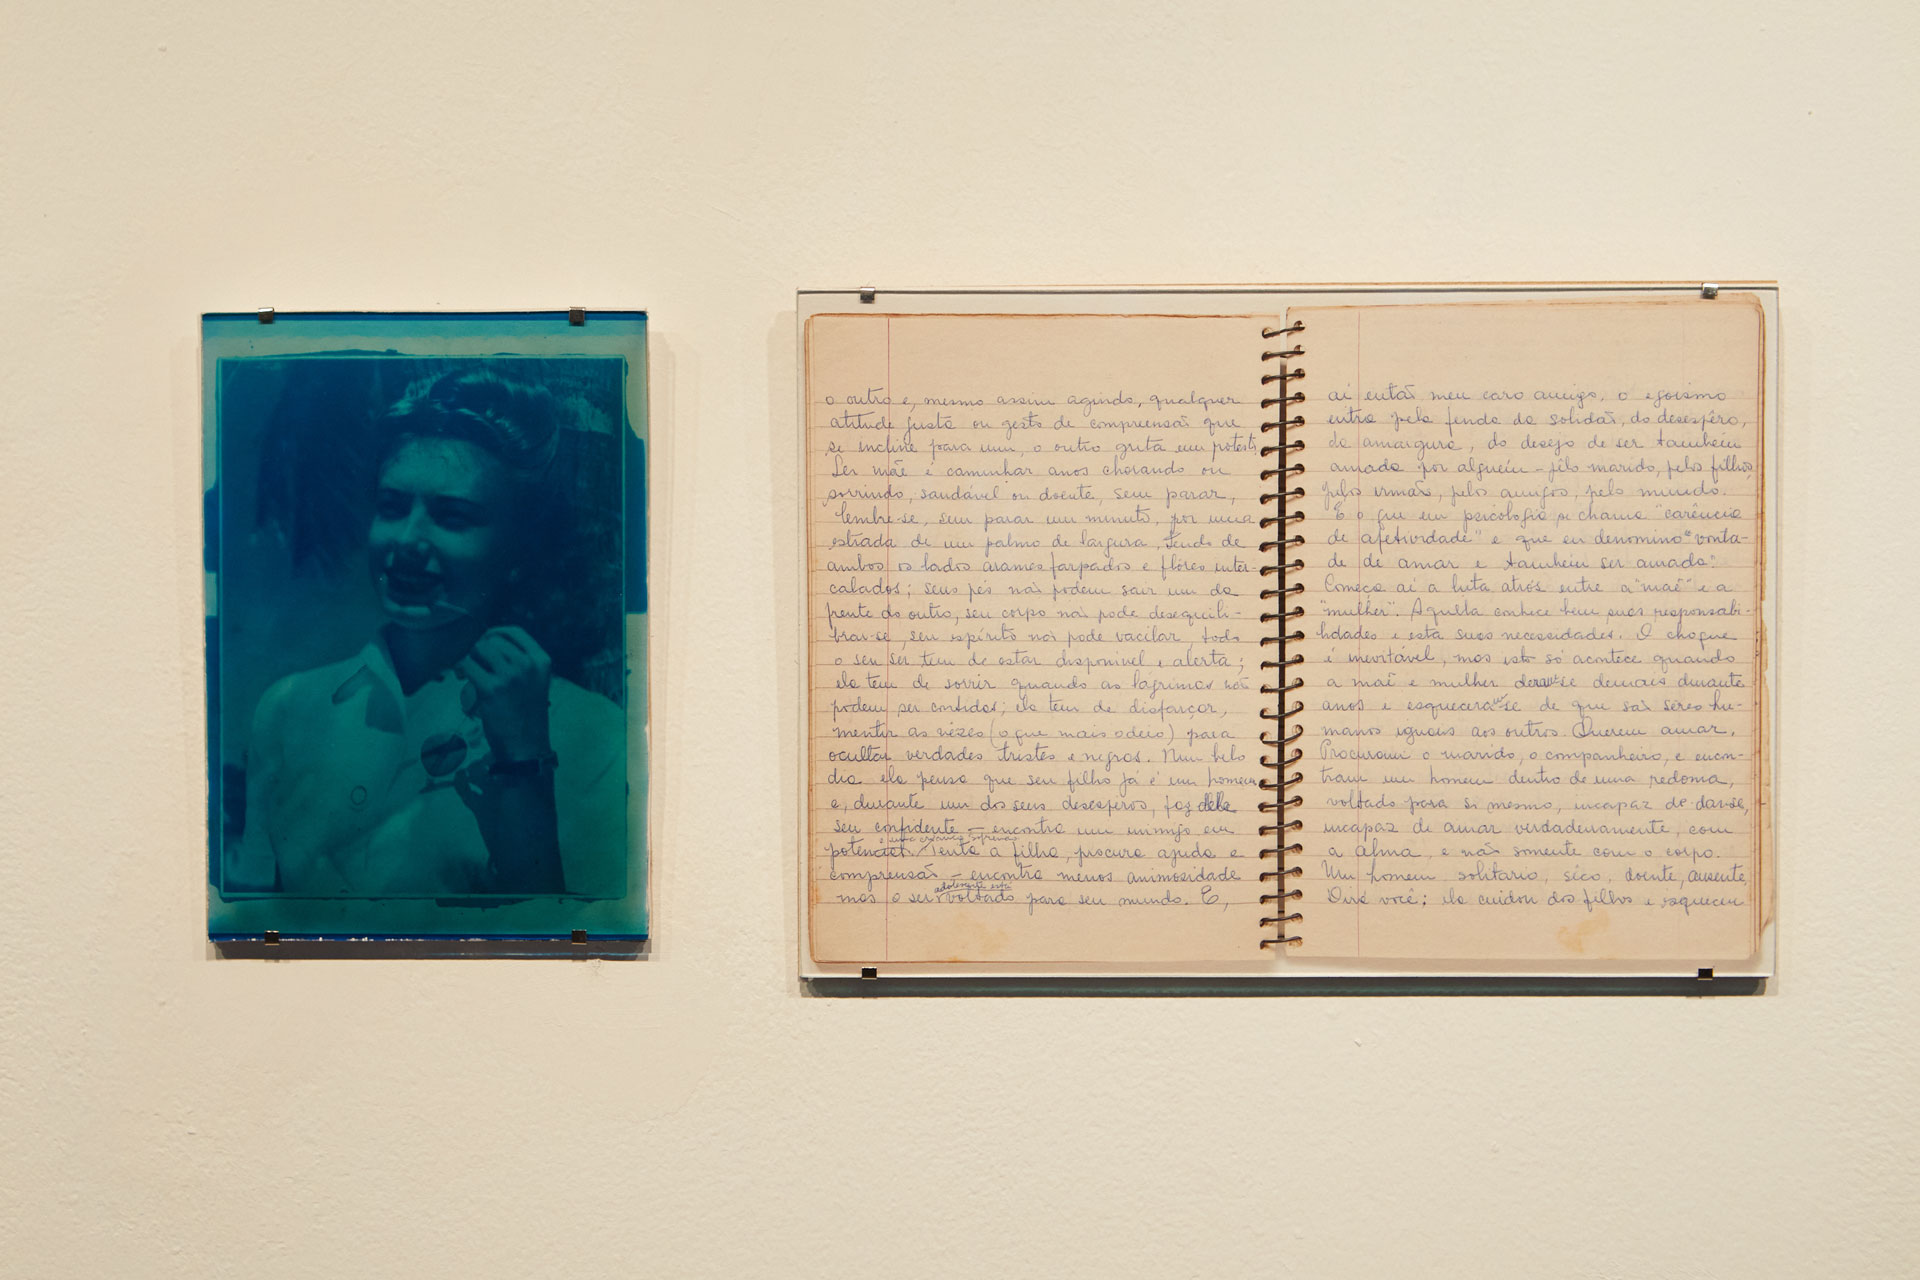 o outro e, mesmo assim agindo, qualquer
atitude justa ou gesto de compreensão que
se incline para um, o outro grita em protesto.
Ser mãe é caminhar anos chorando ou
sorrindo, saudável ou doente, sem parar,
lembre-se, sem parar um minuto, por uma
estrada de um palmo de largura, tendo de
ambos os lados arames farpados e flôres inter-
calados; seus pés não podem sair um da
frente do outro, seu corpo não pode desequili-
brar-se, seu espírito não pode vacilar, todo
o seu ser tem de estar disponivel e alerta;
ela tem de sorrir quando as lagrimas não
podem ser contidas; ela tem de disfarçar,
mentir as vezes (o que mais odeio) para
ocultar verdades tristes e negras. Num belo
dia ela pensa que seu filho já é um homem
e, durante um dos seus desesperos, faz dele
seu confidente – encontra um inimigo em
potencial. Tenta a filha, procura ajuda e
comprensão – encontra menos animosidade
mas o ser adolescente está voltado para seu mundo. E,
aí então meu caro amigo, o egoismo
entra pela fenda da solidão, do desespêro,
da amargura, do desejo de ser tambem
amada por alguem – pêlo marido, pelos filhos,
pelos irmãos, pelos amigos, pelo mundo.
É o que em psicologia se chama "carência
de afetividade" e que eu denomino "vonta-
de de amar e tambem ser amada".
Começa aí a luta atrós entre a "mãe" e a
"mulher". Aquela conhece bem suas responsabi-
lidades e esta suas necessidades. O choque
é inevitável, mas isto só acontece quando
a mãe e mulher deram-se demais durante
anos e esqueceram-se de que são sêres hu-
manos iguais aos outros. Querem amar.
Procuram o marido, o companheiro, e encon-
tram um homem dentro de uma redoma,
voltado para si mesmo, incapaz de dar-se,
incapaz de amar verdadeiramente, com
a alma, e não somente com o corpo.
Um homem solitario, sêco, doente, ausente.
Dirá você: ela cuidou dos filhos e esqueceu